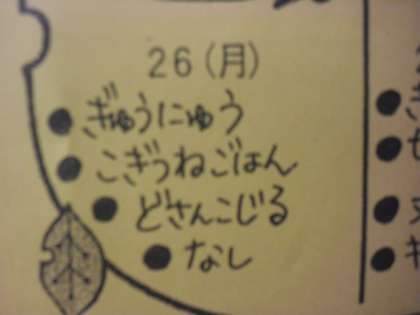 26(月)
●ぎゅうにゅう
●こぎつねごはん
●どさんこじる
●なし